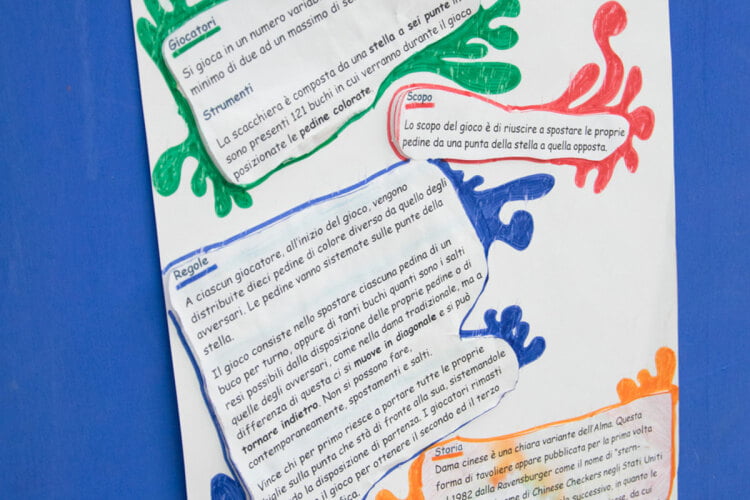 Giocatori
Si gioca in un numero
minimo di due ad un massimo di
Strumenti
La scacchiera è composta da una stella a sei punte in
sono presenti 121 buchi in cui verranno durante il gioco
posizionate le pedine colorate.
Scopo
Lo scopo del gioco è di riuscire a spostare le proprie
pedine da una punta della stella a quella opposta.
Regole
A ciascun giocatore, all'inizio del gioco, vengono
distribuite dieci pedine di colore diverso da quello degli
avversari. Le pedine vanno sistemate sulle punte della
stella.
Il gioco consiste nello spostare ciascuna pedina di un
buco per turno, oppure di tanti buchi quanti sono i salti
resi possibili dalla disposizione delle proprie pedine o di
quelle degli avversari, come nella dama tradizionale, ma a
differenza di questa ci si muove in diagonale e si può
tornare indietro. Non si possono fare,
contemporaneamente, spostamenti e salti.
Vince chi per primo riesce a portare tutte le proprie
sulla punta che stà di fronte alla sua, sistemandole
la disposizione di partenza. I giocatori rimasti
il gioco per ottenere il secondo ed il terzo
Storia
Dama cinese è una chiara variante dell'Alma. Questa
forma di tavoliere appare pubblicata per la prima volta
1982 dalla Ravensburger come il nome di "stern-
me di Chinese Checkers negli Stati Uniti
successivo, in quanto le
da cui